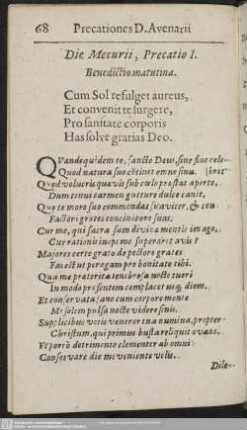 68 Precationes D. Avenarii
Die Mercurii, Precatio I.
Benedictio matutina.
Cum Sol refulget aureus,
Et convenit te surgere,
Pro sanitate corporis
Has solve gratias Deo.
QVandoquidem te, sancte Deus, sine fine cele-
Quod natura suo obtinet omne sinu. (bret
Quod volucris quævis sub cælo præstat aperto,
Dum tenui carmen gutture dulce canit,
Quæ te more suo commendat suaviter, &
Factori grates concinit ore suas.
Cur me, qui sacra sum divinæ mentis imago,
Cur rationis inops me superaret avis?
Majores certe grato de pectore grates
Fas est ut peragam pro bonitate tibi.
Qua me præterita tenebrosa nocte tueri
In modo præsentem complacet usque, diem.
Et conservata sano cum corpore mente
Me solem pulsa nocte videre sinis.
Supplicibus votis veneror tua numina, propter
Christum, qui primus busta reliquit ovans.
Ut porrò detrimento clementer ab omni
Conservare die me veniente velis.
Dile-